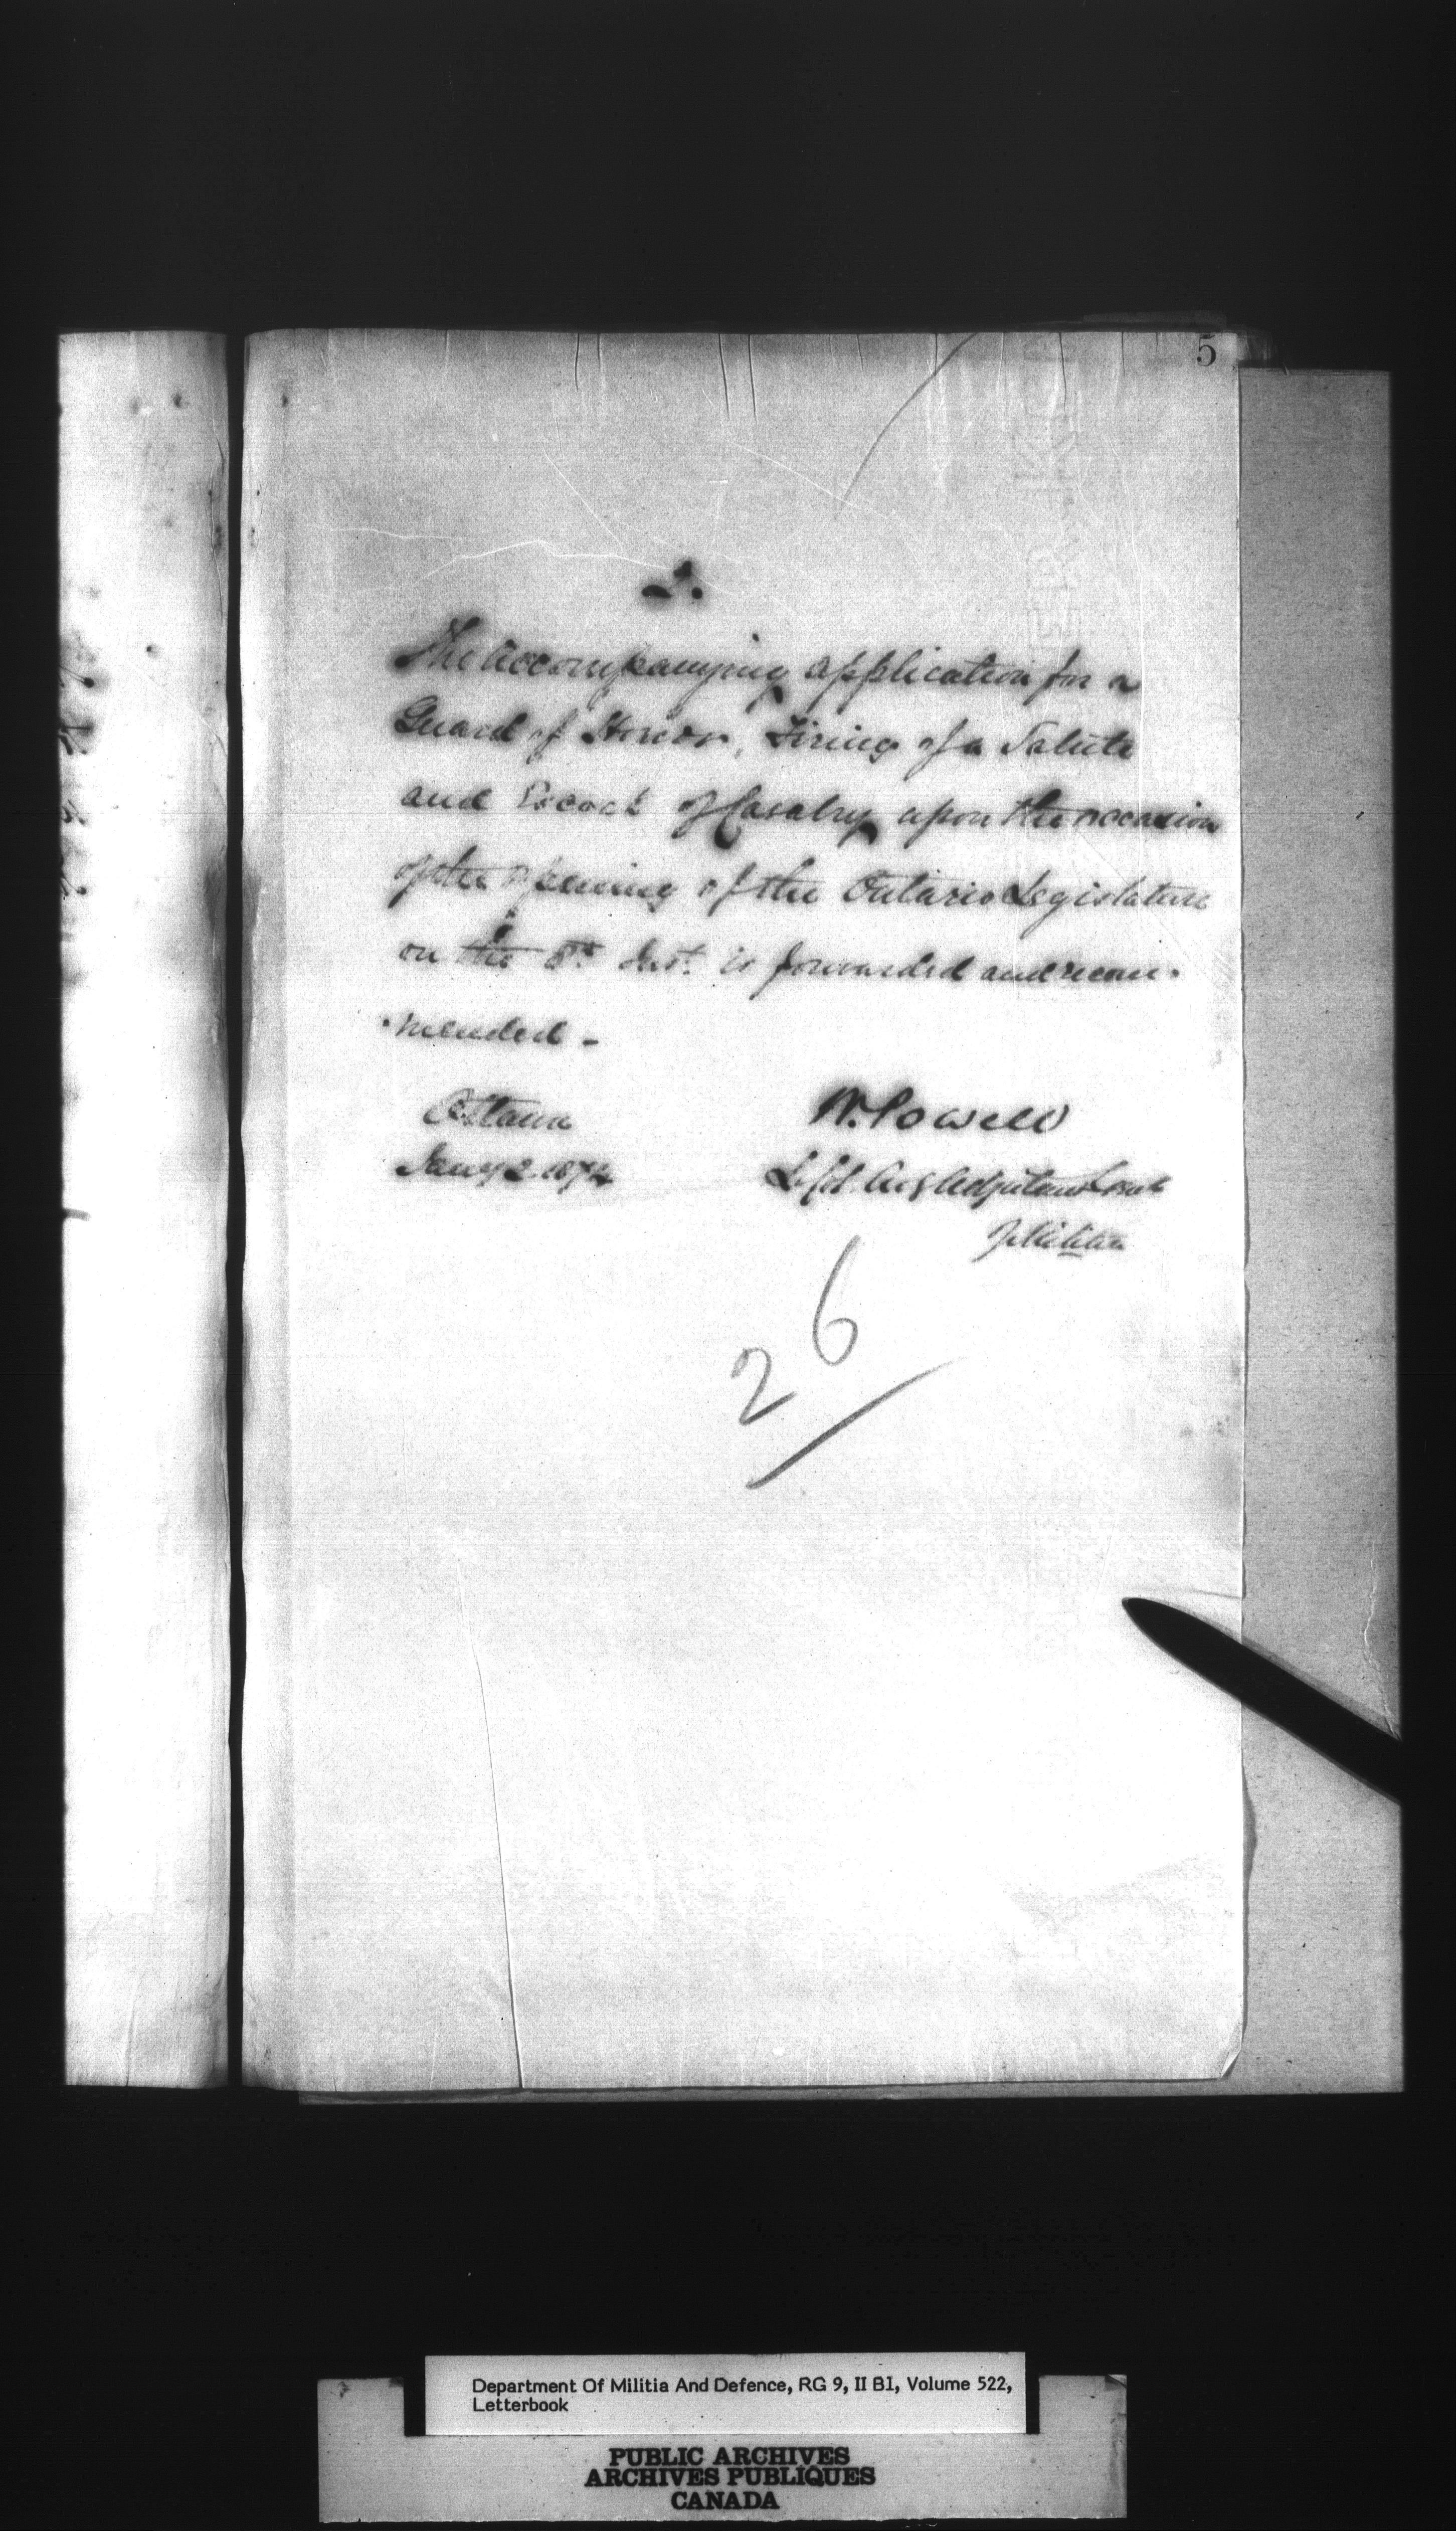 5
2.
The accompanying application for a
Guard of Honor, Firing of a Salute
and Escort of Cavalry upon the occasion
of the opening of the Ontario Legislature
on the 8th Inst. is forwarded and recom-
-mended -
Ottawa
Jany 2. 1874
W. Powell
Lt Col. Actg Adjutant Genl
of Militia
26
Department Of Militia And Defence, RG 9, II B1, Volume 522,
Letterbook
PUBLIC ARCHIVES
ARCHIVES PUBLIQUES
CANADA